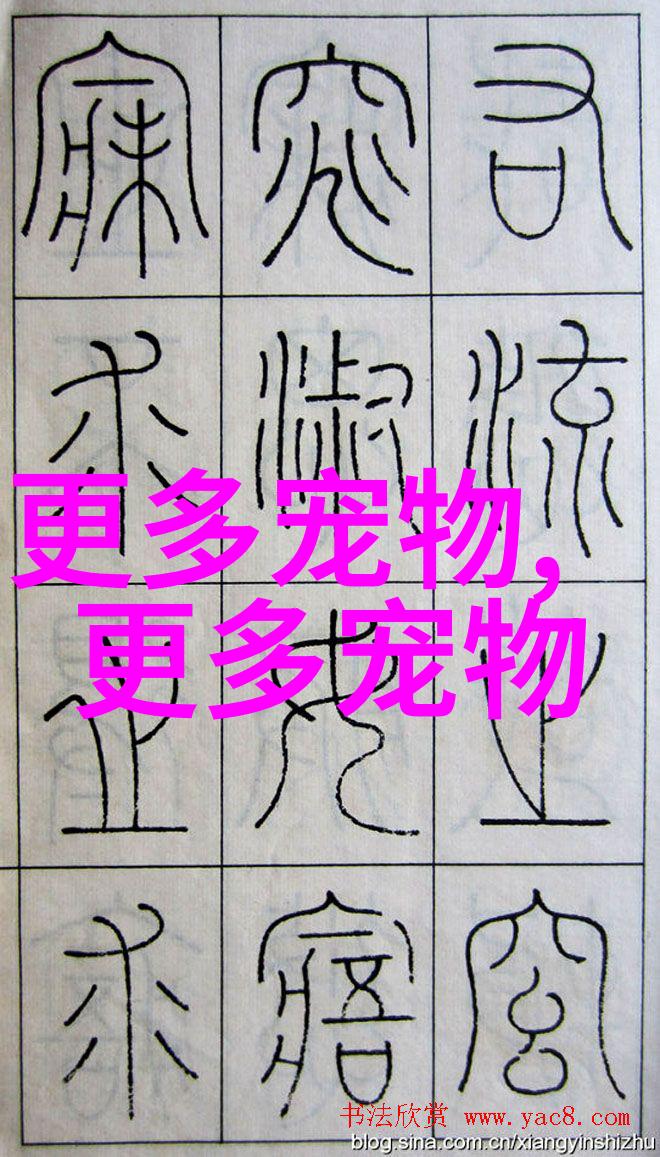 右流之窈
窕淑女寤
寐求之求
更多宠物,
更多宠物
书法欣赏 www.yac8.com
blog.sina.com.cn/xiangyinshizhu